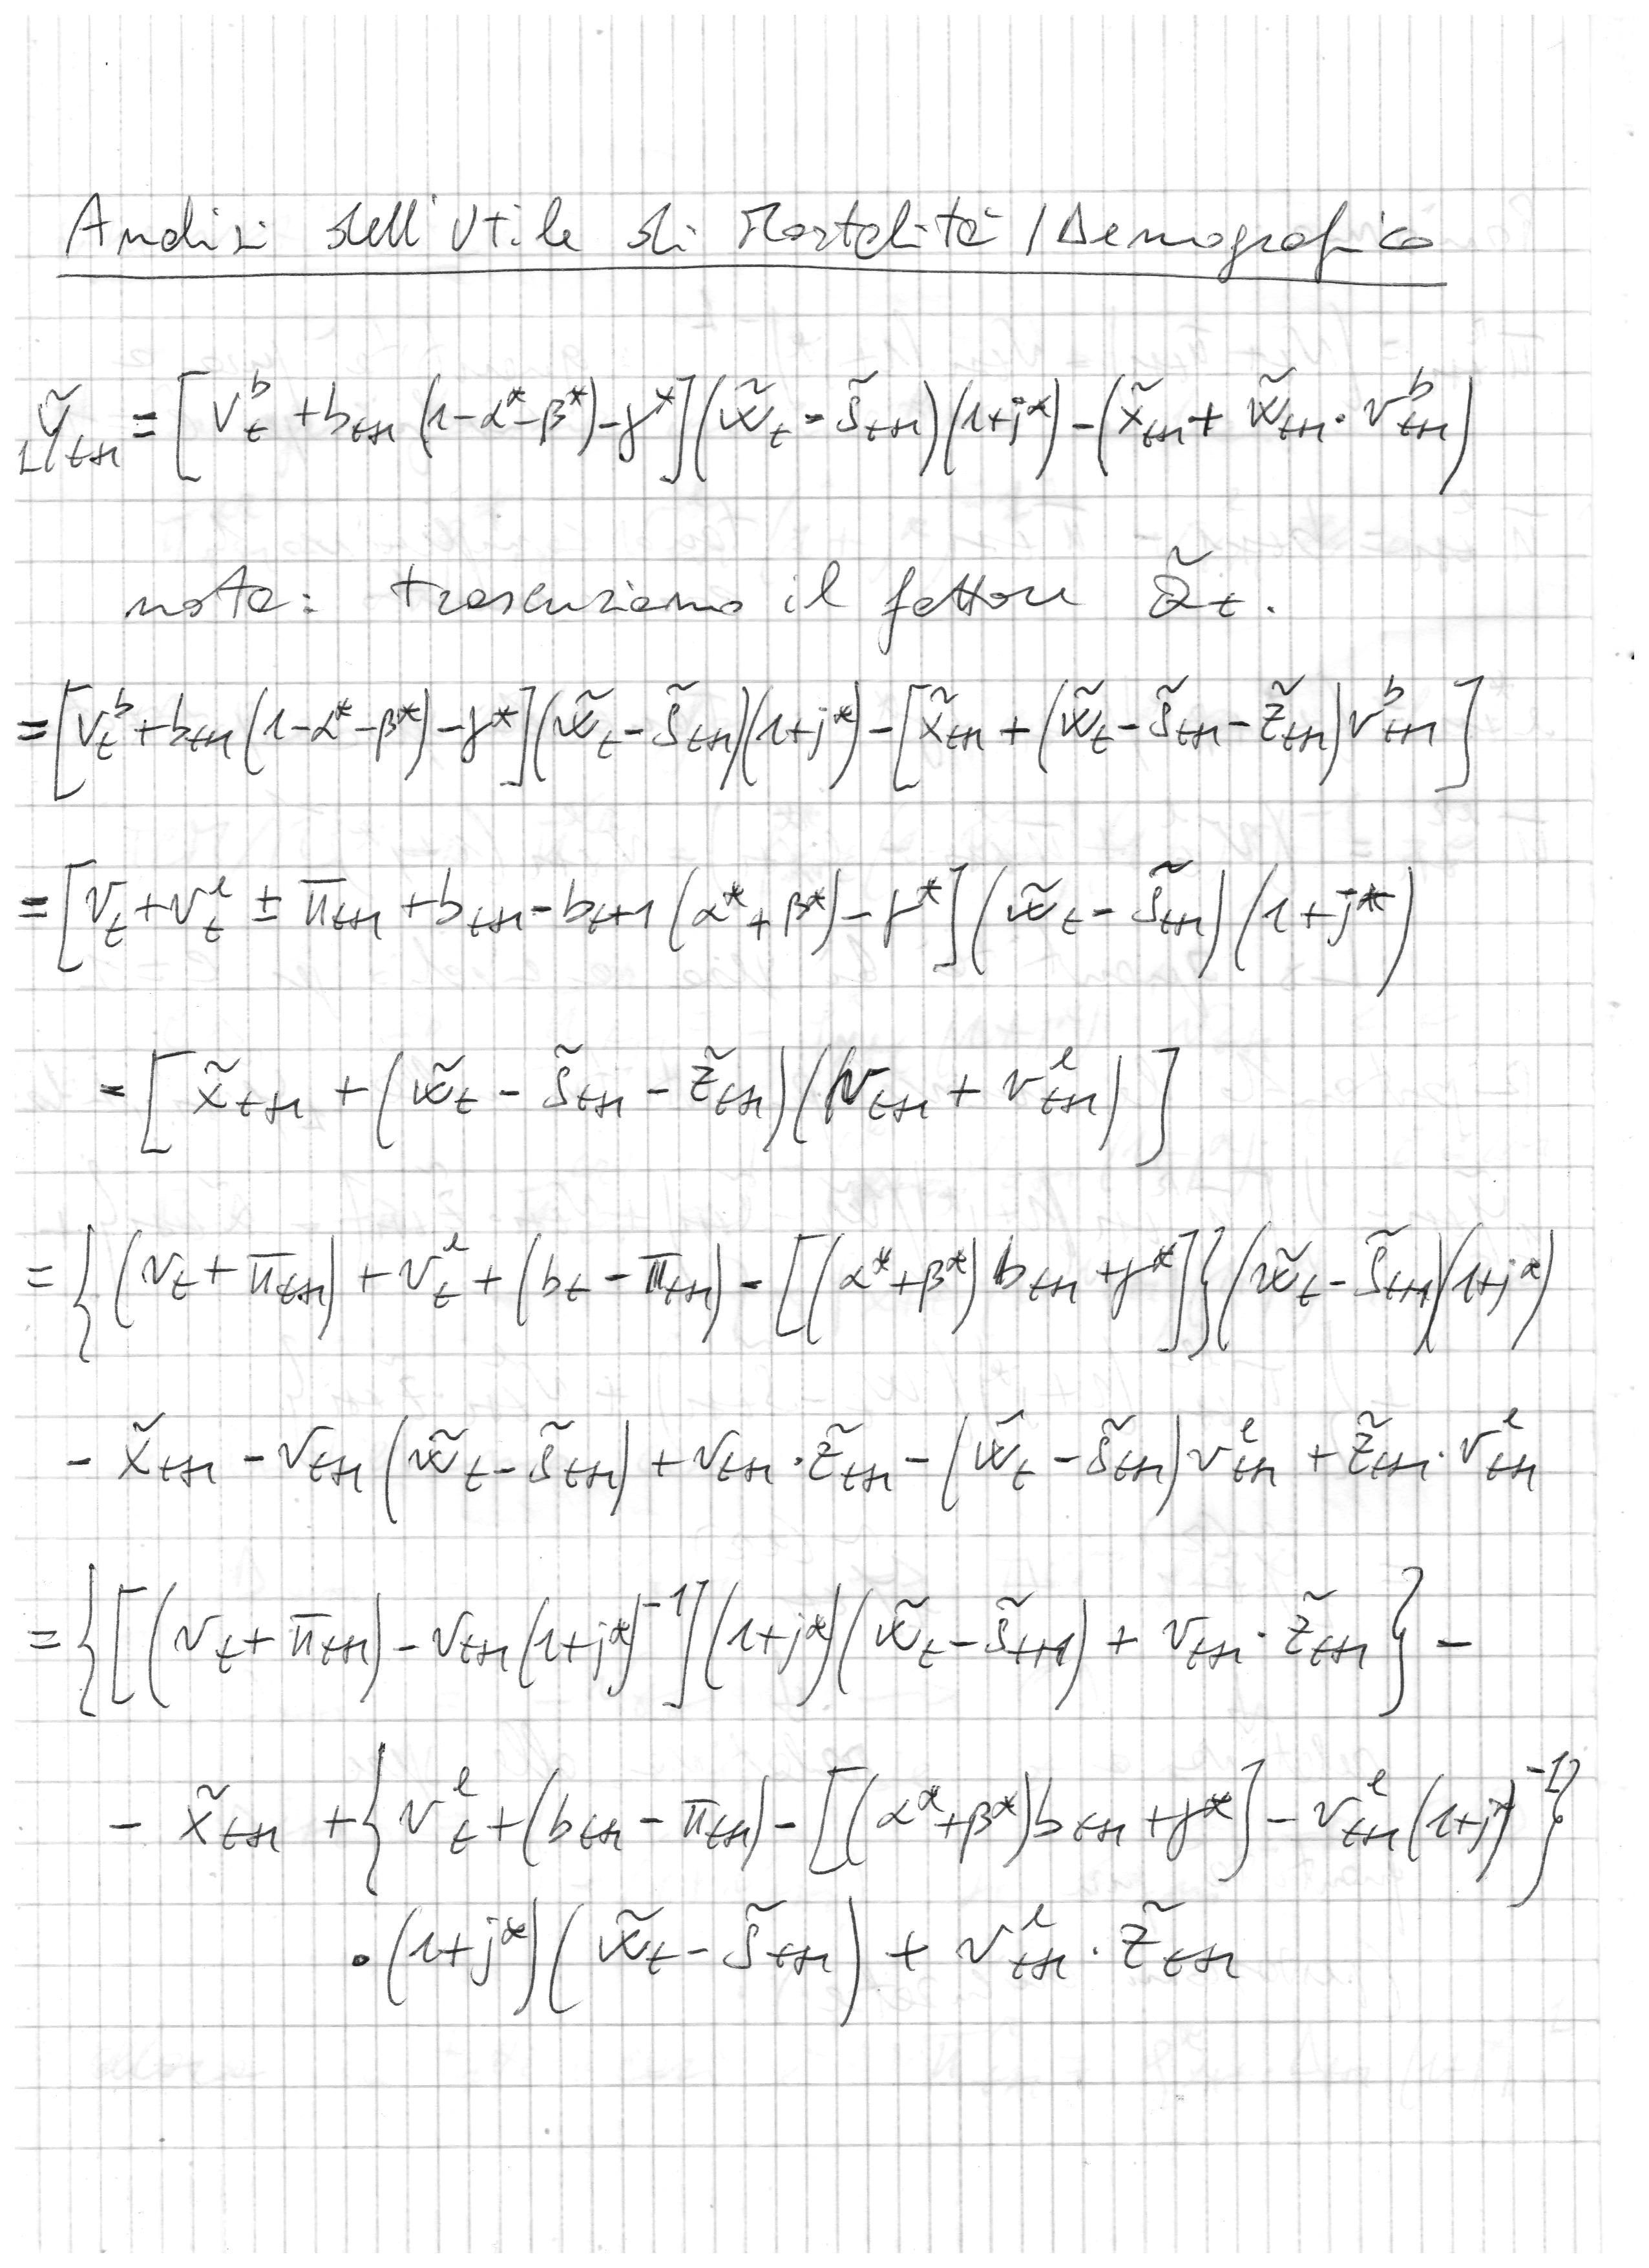 Analisi dell'Utile di Mortalità / Demografico
₁ỹ_{t+1} = [V_t^b + b_{t+1} (1-α*-β*) - γ*] (w̃_t - s̃_{t+1}) (1+j*) - (x̃_{t+1} + w̃_{t+1} · V_{t+1}^b)
nota: trascuriamo il fattore Q̃_t.
= [V_t^b + b_{t+1} (1-α*-β*) - γ*] (w̃_t - s̃_{t+1}) (1+j*) - [x̃_{t+1} + (w̃_t - s̃_{t+1} - z̃_{t+1}) V_{t+1}^b]
= [V_t + V_t^e ± π_{t+1} + b_{t+1} - b_{t+1} (α* + β*) - γ*] (w̃_t - s̃_{t+1}) (1+j*)
- [x̃_{t+1} + (w̃_t - s̃_{t+1} - z̃_{t+1}) (V_{t+1} + V_{t+1}^e)]
= {(V_t + π_{t+1}) + V_t^e + (b_t - π_{t+1}) - [(α*+β*) b_{t+1} + γ*]} (w̃_t - s̃_{t+1}) (1+j*)
- x̃_{t+1} - V_{t+1} (w̃_t - s̃_{t+1}) + V_{t+1} · z̃_{t+1} - (w̃_t - s̃_{t+1}) V_{t+1}^e + z̃_{t+1} · V_{t+1}^e
= {[(V_t + π_{t+1}) - V_{t+1} (1+j*)^{-1}] (1+j*) (w̃_t - s̃_{t+1}) + V_{t+1} · z̃_{t+1}} -
- x̃_{t+1} + {V_t^e + (b_{t+1} - π_{t+1}) - [(α*+β*) b_{t+1} + γ*] - V_{t+1}^e (1+j*)^{-1}}
· (1+j*) (w̃_t - s̃_{t+1}) + V_{t+1}^e · z̃_{t+1}